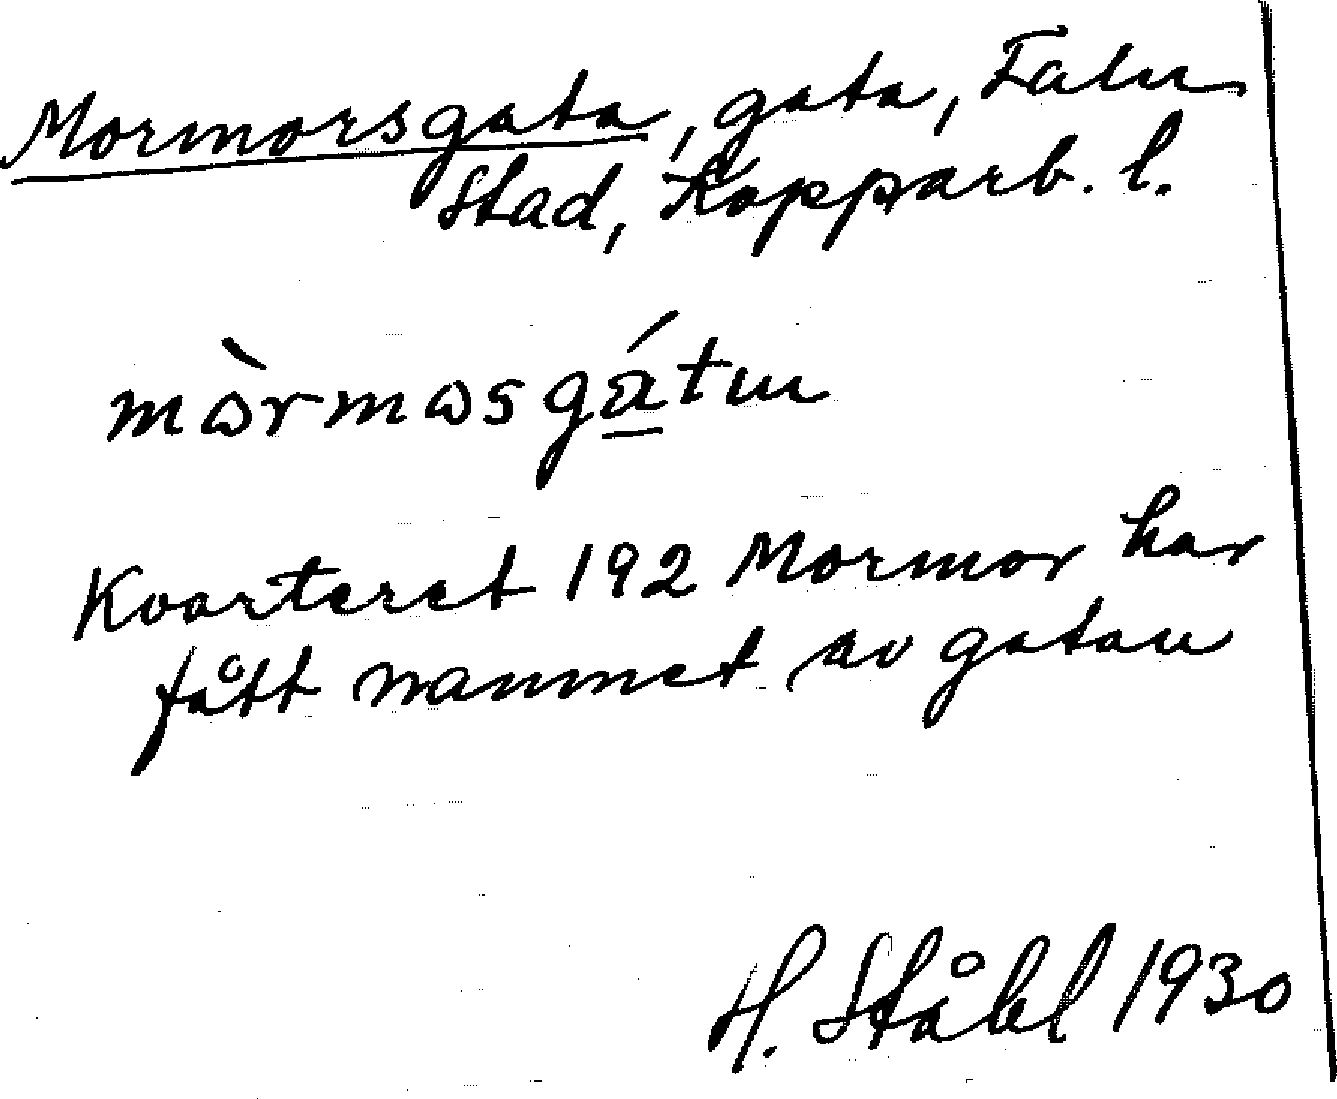 Mormorsgata, gata, Falu
Stad, Kopparb. l.
mɷ̀rmɷsgá̱tın
Kvarteret 192 Mormor har
fått namnet av gatan
H. Ståhl 1930